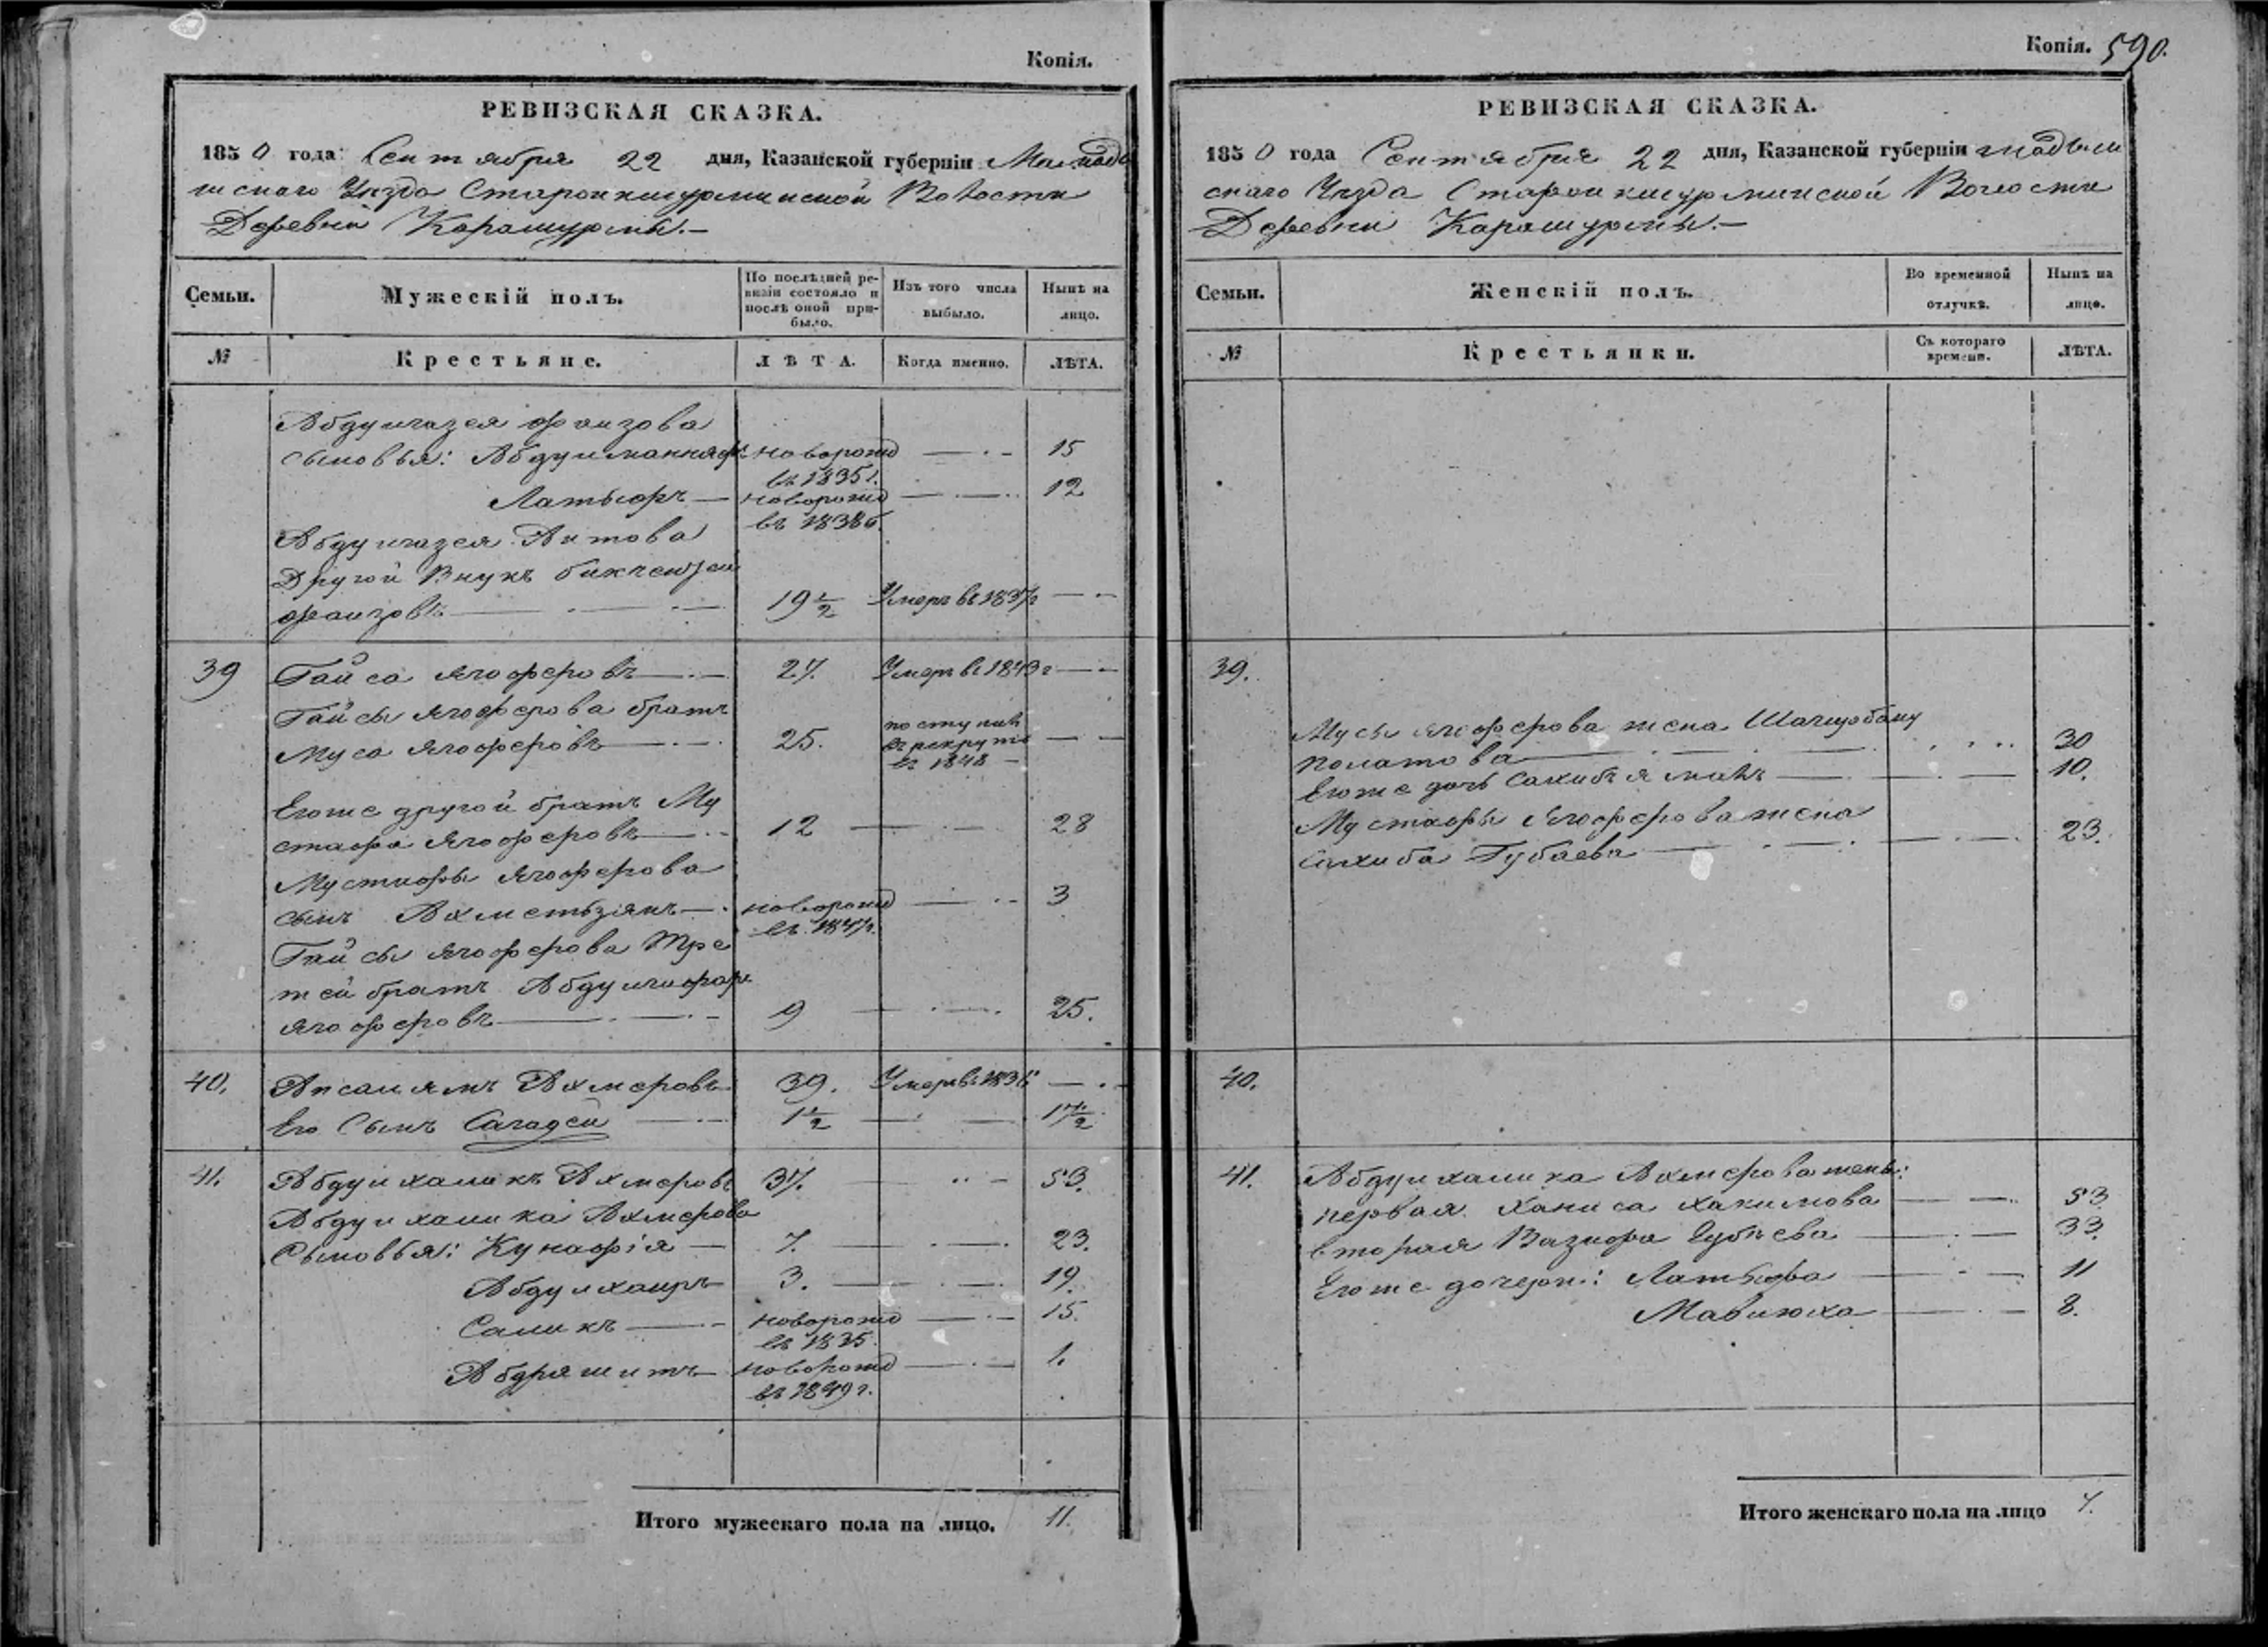 Копія.
РЕВИЗСКАЯ СКАЗКА.
1850 года Сентября 22 дня, Казанской губерніи Мамады
шскаго Уѣзда Старокишурминской Волости
Деревни Карашурмы.—
Семьи. Мужескій полъ. По послѣдней ре-
визіи состояло и
послѣ оной при-
было. Изъ того числа
выбыло. Нынѣ на
лицо.
№ Крестьяне. ЛѢТА. Когда именно. ЛѢТА.
Абдулгазея Фаизова
сыновья: Абдулманнафъ новорожд 15
въ 1835 г.
Латыфъ новорожд 12
въ 1838 г.
Абдулгазея Аитова
Другой Внукъ
Фаизовъ 19 1/2 Умеръ въ 1837 г
39 Гайса Ягоферовъ 27. Умеръ въ 1843 г
Гайсы Ягоферова братъ
Муса Ягоферовъ 25. поступилъ
въ рекруты
въ 1848
Егоже другой братъ Му
стафа Ягоферовъ 12 28
Мустафы Ягоферова
сынъ Ахметьзянъ новорожд 3
въ 1847 г.
Гайсы Ягоферова Тре
тей братъ Абдулгафаръ
Ягоферовъ 9 25.
40. Апсалямъ Ахмеровъ 39. Умеръ въ 1836
Его Сынъ Сагадей 1 1/2 17 1/2
41. Абдулхаликъ Ахмеровъ 37. 53.
Абдулхалика Ахмерова
Сыновья: Кунафія 7. 23.
Абдулхаиръ 3. 19.
Саликъ новорожд 15.
въ 1835.
Абдряшитъ новорожд 1.
въ 1849 г.
Итого мужескаго пола на лицо. 11.
Копія. 590.
РЕВИЗСКАЯ СКАЗКА.
1850 года Сентября 22 дня, Казанской губерніи мадыш
скаго Уѣзда Старокишурминской Волости
Деревни Карашурмы.—
Семьи. Женскій полъ. Во временной
отлучкѣ. Нынѣ на
лицо.
№ Крестьянки. Съ котораго
времени. ЛѢТА.
39.
Мусы Ягоферова жена Шагирбану
Полатова 30
Егоже дочь Сахибзямалъ 10.
Мустафы Ягоферова жена
Сахиба Губаева 23.
40.
41. Абдулхалика Ахмерова жены:
первая Ханиса Хакимова 53
вторая Вазифа Губеева 33.
Егоже дочери: Латыфа 11
Мавлюха 8.
Итого женскаго пола на лицо 7.